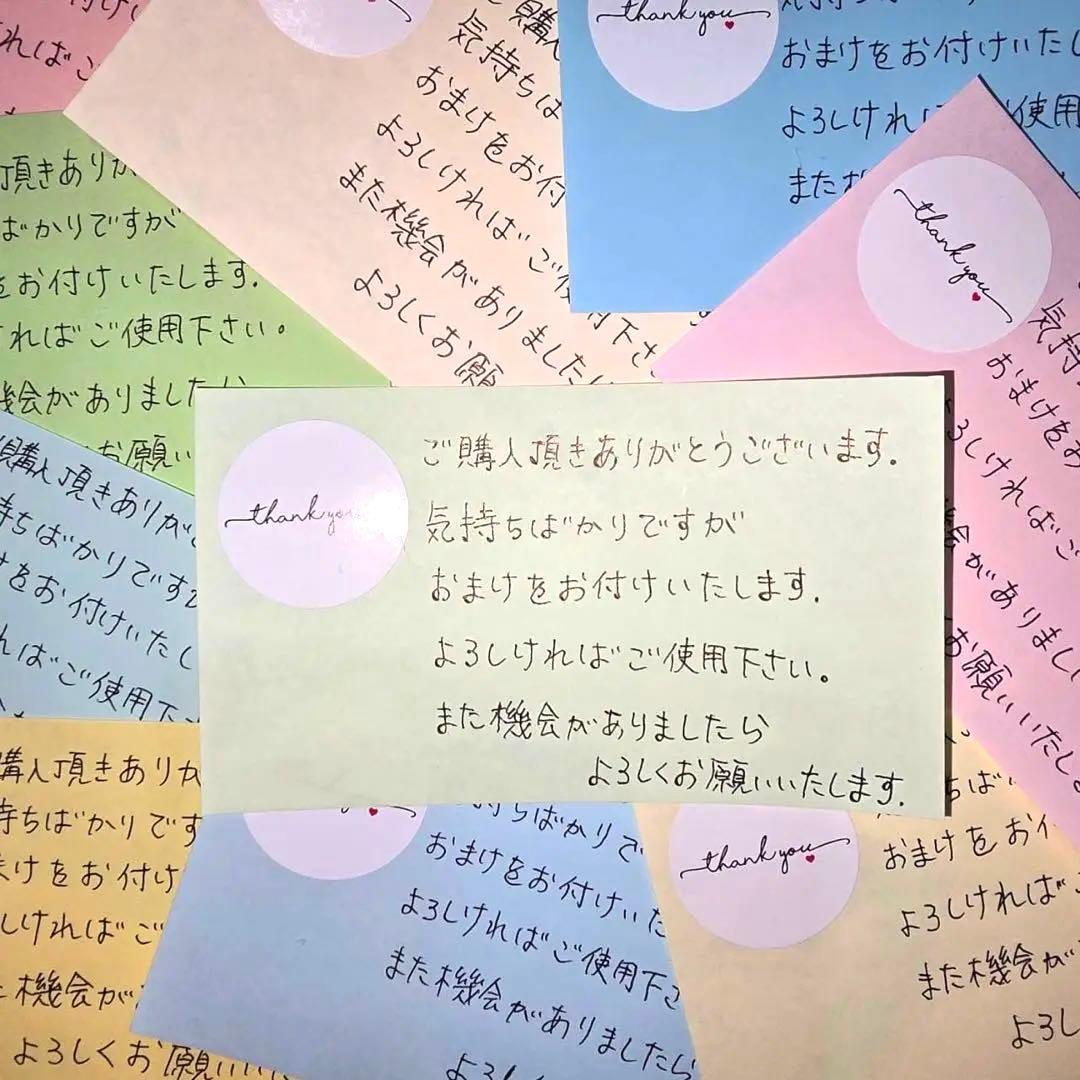 thank you
おまけをお付けいたし
よろしければ
使用
また機
気持ちは
おまけをお付
よろしければご使用下さ
また機会がありました
よろしくお願
thank you
頂きありが
ばかりですが
をお付けいたします.
ければご使用下さい。
機会がありました
お願い
購入頂きありが
持ちばかりです
をお付けいたし
ればご使用下
thank you
ご購入頂きありがとうございます.
気持ちばかりですが
おまけをお付けいたします.
よろしければご使用下さい。
また機会がありましたら
よろしくお願いいたします.
気持
おまけをお
ろしければご
会がありまし
お願いいたしま
購入頂きありが
持ちばかりです
まけをお付け
しければご
機会が
よろしくお願い
持ちばかりで
おまけをお付けいた
よろしければご使用下さ
また機会がありましたら
よろし
thank you
ちば
おまけをお
よろしければ
また機会が
よろし